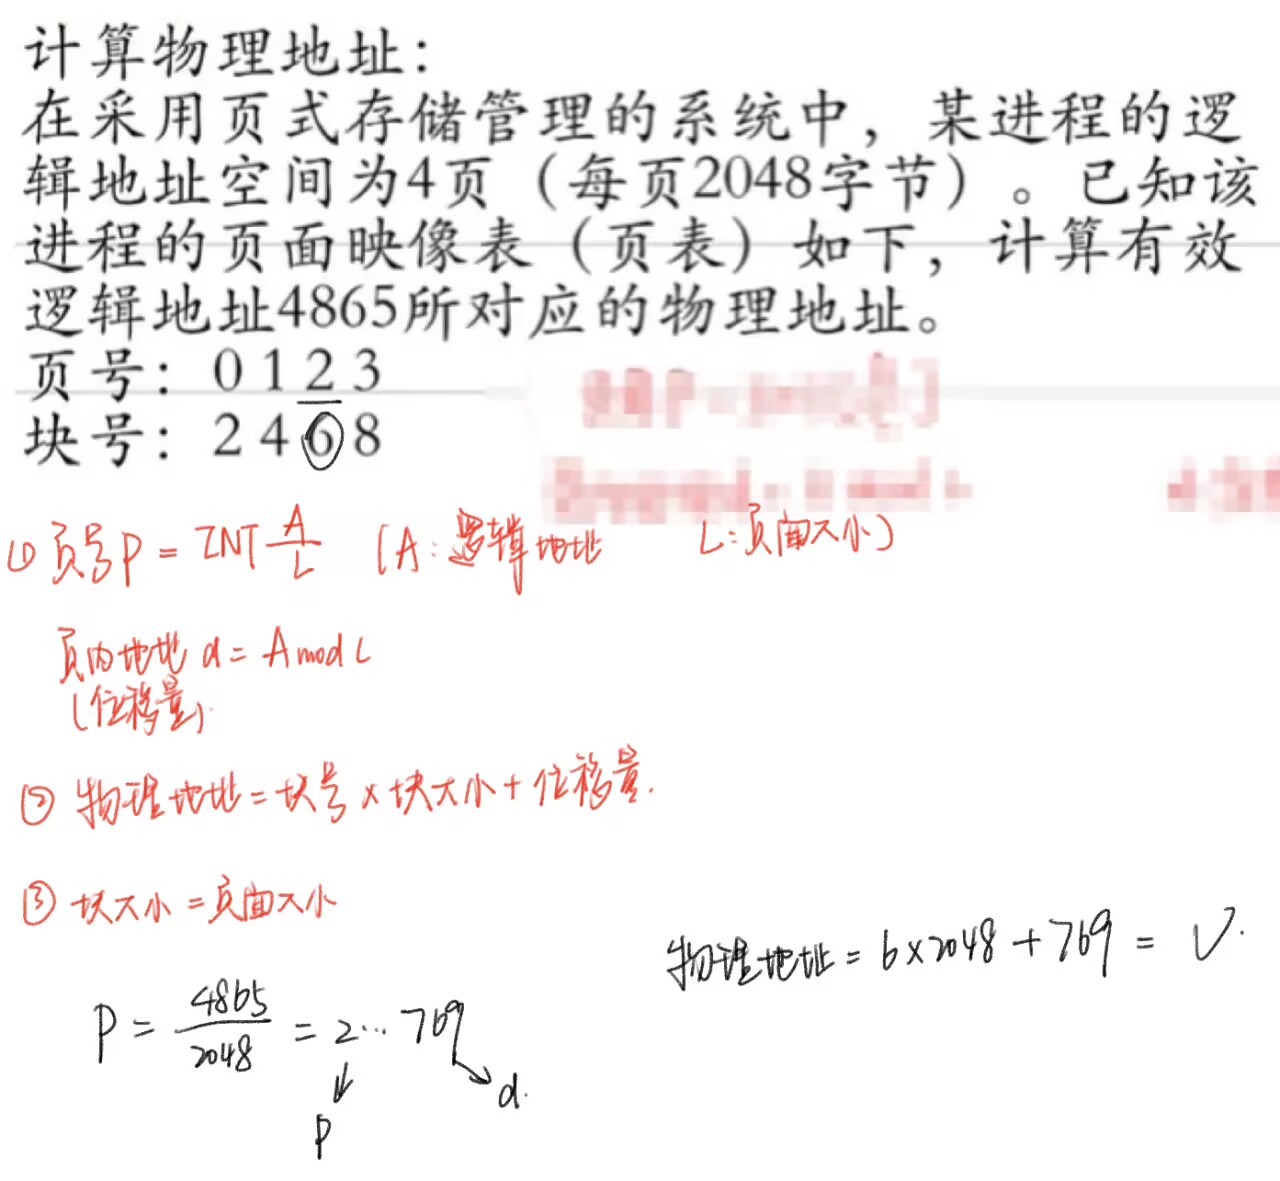 计算物理地址：
在采用页式存储管理的系统中，某进程的逻
辑地址空间为4页（每页2048字节）。已知该
进程的页面映像表（页表）如下，计算有效
逻辑地址4865所对应的物理地址。
页号：0 1 2 3
块号：2 4 6 8
① 页号P = INT A/L （A：逻辑地址 L：页面大小）
页内地址 d = A mod L
（位移量）
② 物理地址 = 块号 × 块大小 + 位移量.
③ 块大小 = 页面大小
物理地址 = 6×2048 + 769 = √.
P = 4865/2048 = 2 ... 769
d.
P